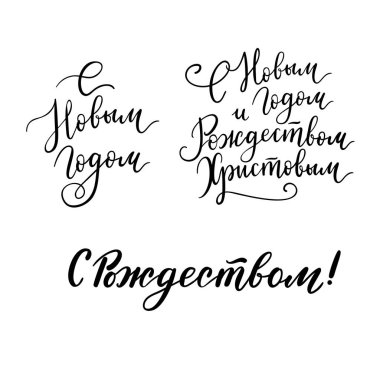 С
Новым
Годом
С Новым
и Годом
Рождеством
Христовым
С Рождеством!